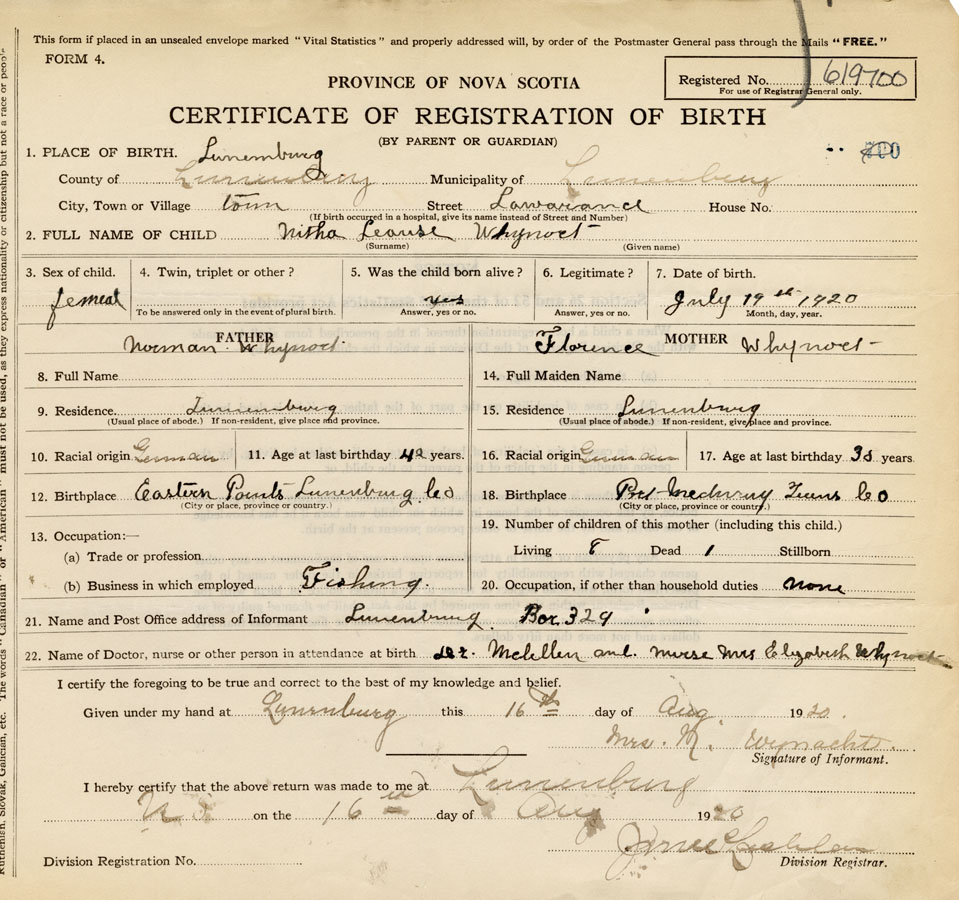 This form if placed in an unsealed envelope marked "Vital Statistics" and properly addressed will, by order of the Postmaster General pass through the Mails "FREE."
FORM 4.
Registered No. 619700
For use of Registrar General only.
PROVINCE OF NOVA SCOTIA
CERTIFICATE OF REGISTRATION OF BIRTH
(BY PARENT OR GUARDIAN)
700
1. PLACE OF BIRTH. Lunemburg
County of Lunenburg Municipality of Lunenburg
City, Town or Village town Street Lawarance House No.
(If birth occurred in a hospital, give its name instead of Street and Number)
2. FULL NAME OF CHILD Nitha Leause Whynoct
(Surname) (Given name)
3. Sex of child. 4. Twin, triplet or other? 5. Was the child born alive? 6. Legitimate? 7. Date of birth.
femeal yes July 19th 1920
To be answered only in the event of plural birth. Answer, yes or no. Answer, yes or no. Month, day, year.
FATHER MOTHER
Norman Whynoct Florence Whynoct
8. Full Name 14. Full Maiden Name
9. Residence Lunenburg 15. Residence Lunenburg
(Usual place of abode.) If non-resident, give place and province. (Usual place of abode.) If non-resident, give place and province.
10. Racial origin German 11. Age at last birthday 42 years. 16. Racial origin German 17. Age at last birthday 38 years.
12. Birthplace Eastern Points Lunenburg Co 18. Birthplace Port Medway Co
(City or place, province or country.) (City or place, province or country.)
13. Occupation:— 19. Number of children of this mother (including this child.)
(a) Trade or profession Living 8 Dead 1 Stillborn
(b) Business in which employed Fishing. 20. Occupation, if other than household duties none
21. Name and Post Office address of Informant Lunenburg Box 329
22. Name of Doctor, nurse or other person in attendance at birth Dr. Mclellen and nurse Mrs Elizabeth Whynoct
I certify the foregoing to be true and correct to the best of my knowledge and belief.
Given under my hand at Lunenburg this 16th day of Aug. 1920.
Mrs. N. Wynacht.
Signature of Informant.
I hereby certify that the above return was made to me at Lunenburg
N.S. on the 16th day of Aug 1920
Division Registration No. Division Registrar.
Ruthenian, Slovak, Galician, etc. The words "Canadian" or "American" must not be used, as they express nationality or citizenship but not a race or people